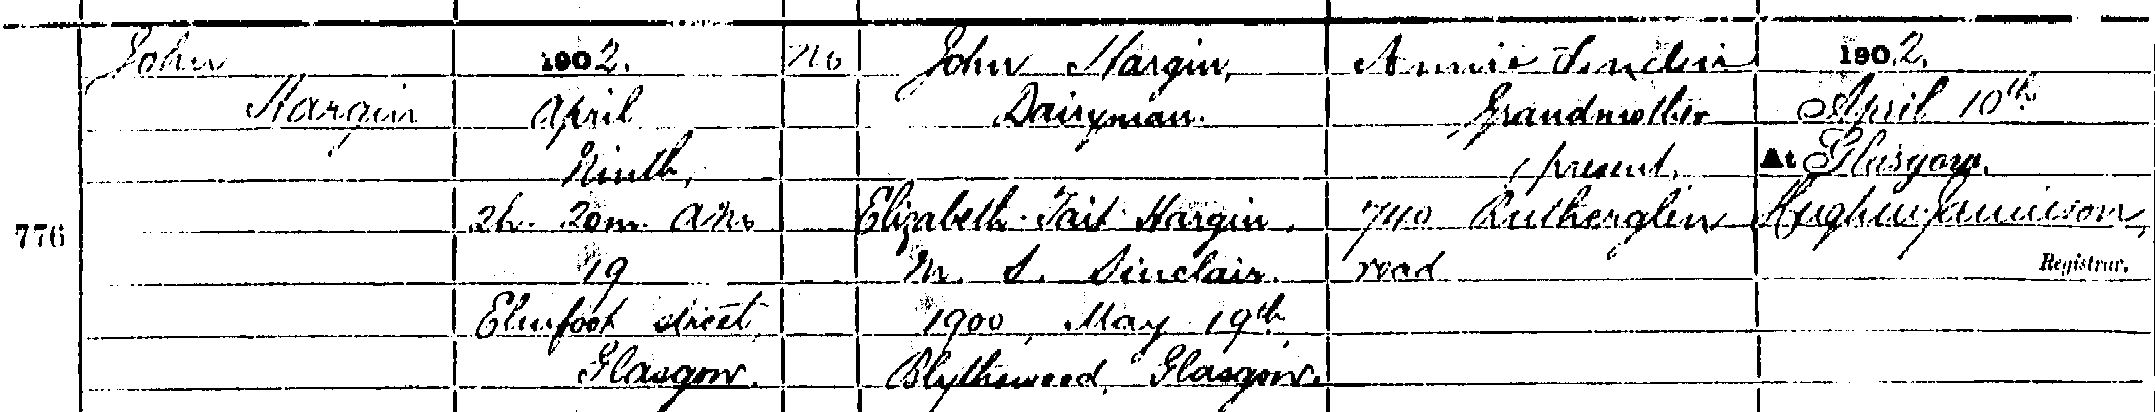 John
Hargin
1902.
April
Ninth,
2h. 20m. AM.
19
Elmfoot street,
Glasgow.
M.
John Hargin,
Dairyman.
Elizabeth Tait Hargin,
M. S. Sinclair.
1900, May 19th,
Blythswood, Glasgow.
Annie Sinclair
Grandmother
present,
740 Rutherglen
road
1902.
April 10th
At Glasgow.
Hugh Jamieson,
Registrar.
776